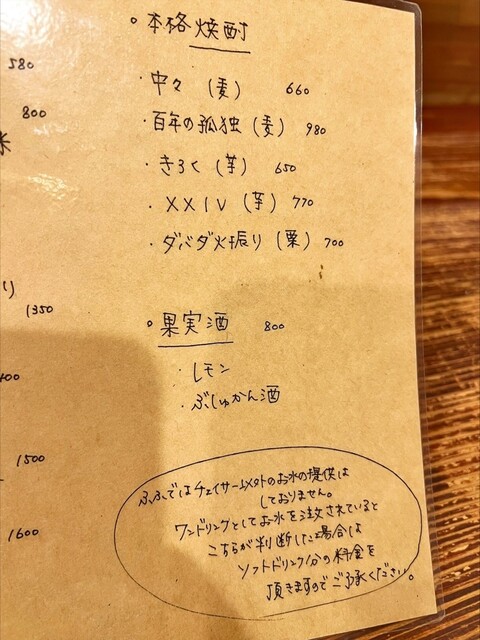 580
800
米
り
1350
1500
1600
○本格焼酎
・中々（麦） 660
・百年の孤独（麦） 980
・きろく（芋） 650
・XXIV（芋） 770
・ダバダ火振り（栗） 700
○果実酒 800
・レモン
・ぶしゅかん酒
ふふではチェイサー以外のお水の提供は
しておりません。
ワンドリンクとしてお水を注文されていると
こちらが判断した場合は
ソフトドリンク1分の料金を
頂きますのでご了承ください。